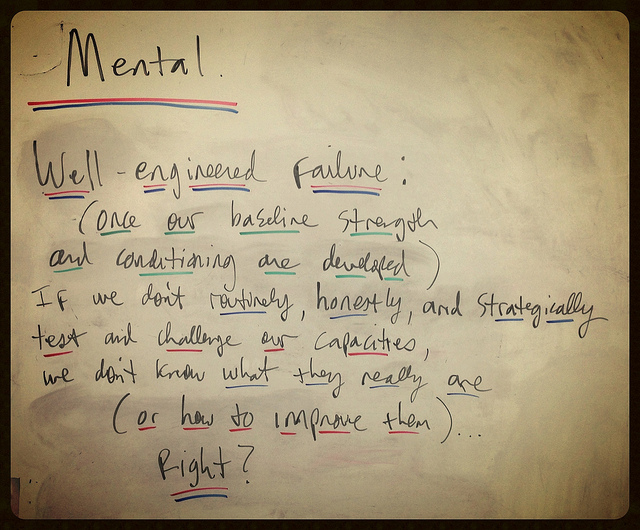 Mental.
Well-engineered Failure:
(once our baseline strength
and conditioning are developed)
If we don't routinely, honestly, and strategically
test and challenge our capacities,
we don't know what they really are
(or how to improve them)...
Right?